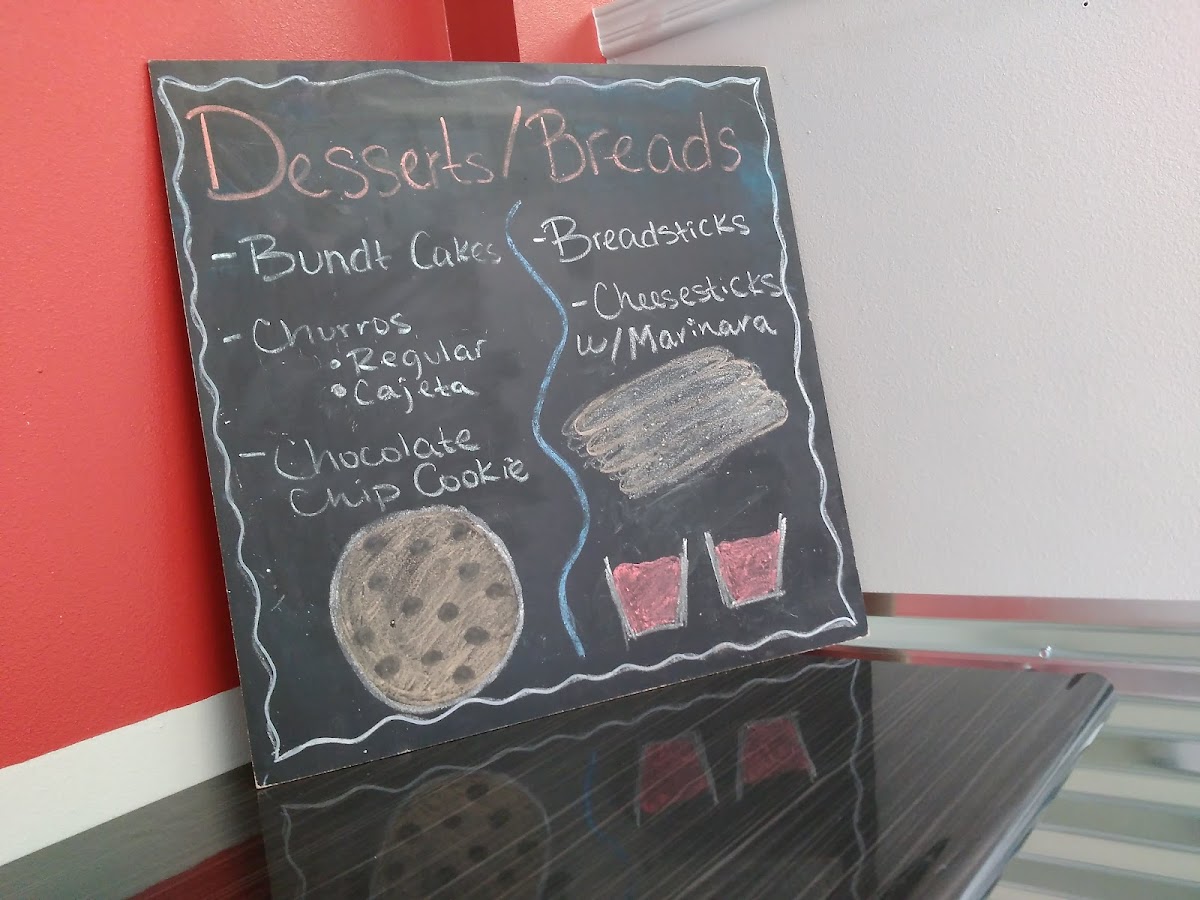 Desserts/Breads
-Bundt Cakes
-Churros
•Regular
•Cajeta
-Chocolate
Chip Cookie
-Breadsticks
-Cheesesticks
w/Marinara